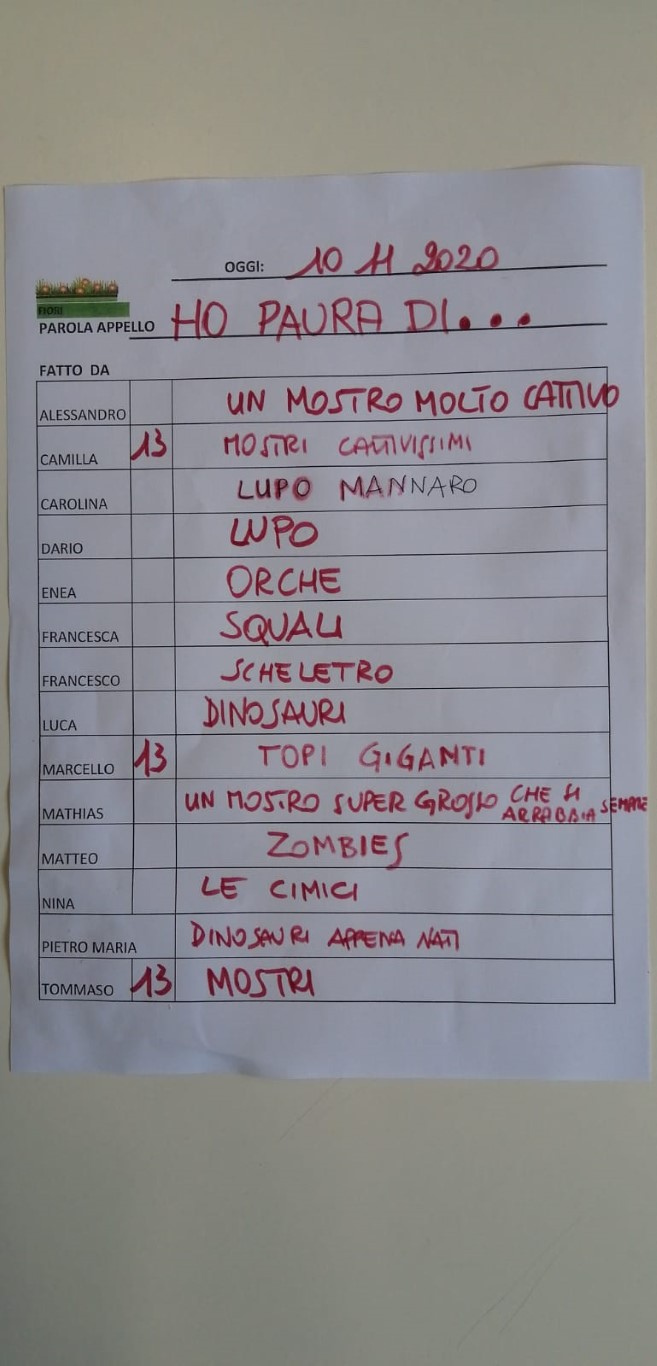 OGGI: 10 11 2020
FIORI
PAROLA APPELLO HO PAURA DI...
FATTO DA
ALESSANDRO UN MOSTRO MOLTO CATTIVO
CAMILLA 13 MOSTRI CATTIVISSIMI
CAROLINA LUPO MANNARO
DARIO LUPO
ENEA ORCHE
FRANCESCA SQUALI
FRANCESCO SCHELETRO
LUCA DINOSAURI
MARCELLO 13 TOPI GIGANTI
MATHIAS UN MOSTRO SUPER GROSSO CHE SI ARRABBIA SEMPRE
MATTEO ZOMBIES
NINA LE CIMICI
PIETRO MARIA DINOSAURI APPENA NATI
TOMMASO 13 MOSTRI